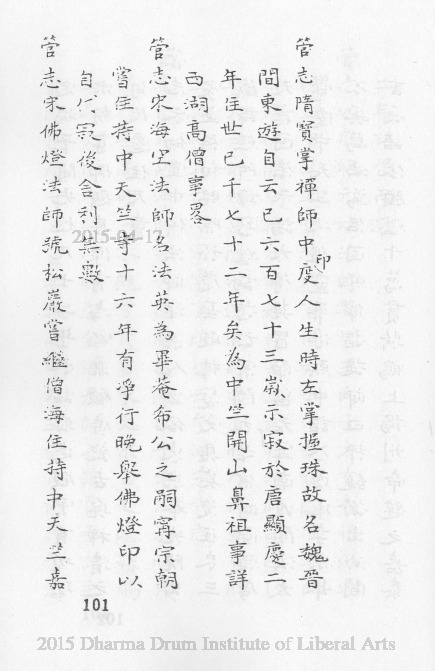 管志隋寶掌禪師中印度人生時左掌握珠故名魏晉
間東遊自云已六百七十三嵗示寂於唐顯慶二
年住世已千七十二年矣為中竺開山鼻祖事詳
西湖高僧事畧
管志宋海空法師名法英為畢菴布公之嗣寧宗朝
嘗住持中天竺寺十六年有淨行晚舉佛燈印以
自代寂後舍利無數
管志宋佛燈法師號松巖嘗繼僧海住持中天竺嘉
101
2015-04-17
2015 Dharma Drum Institute of Liberal Arts